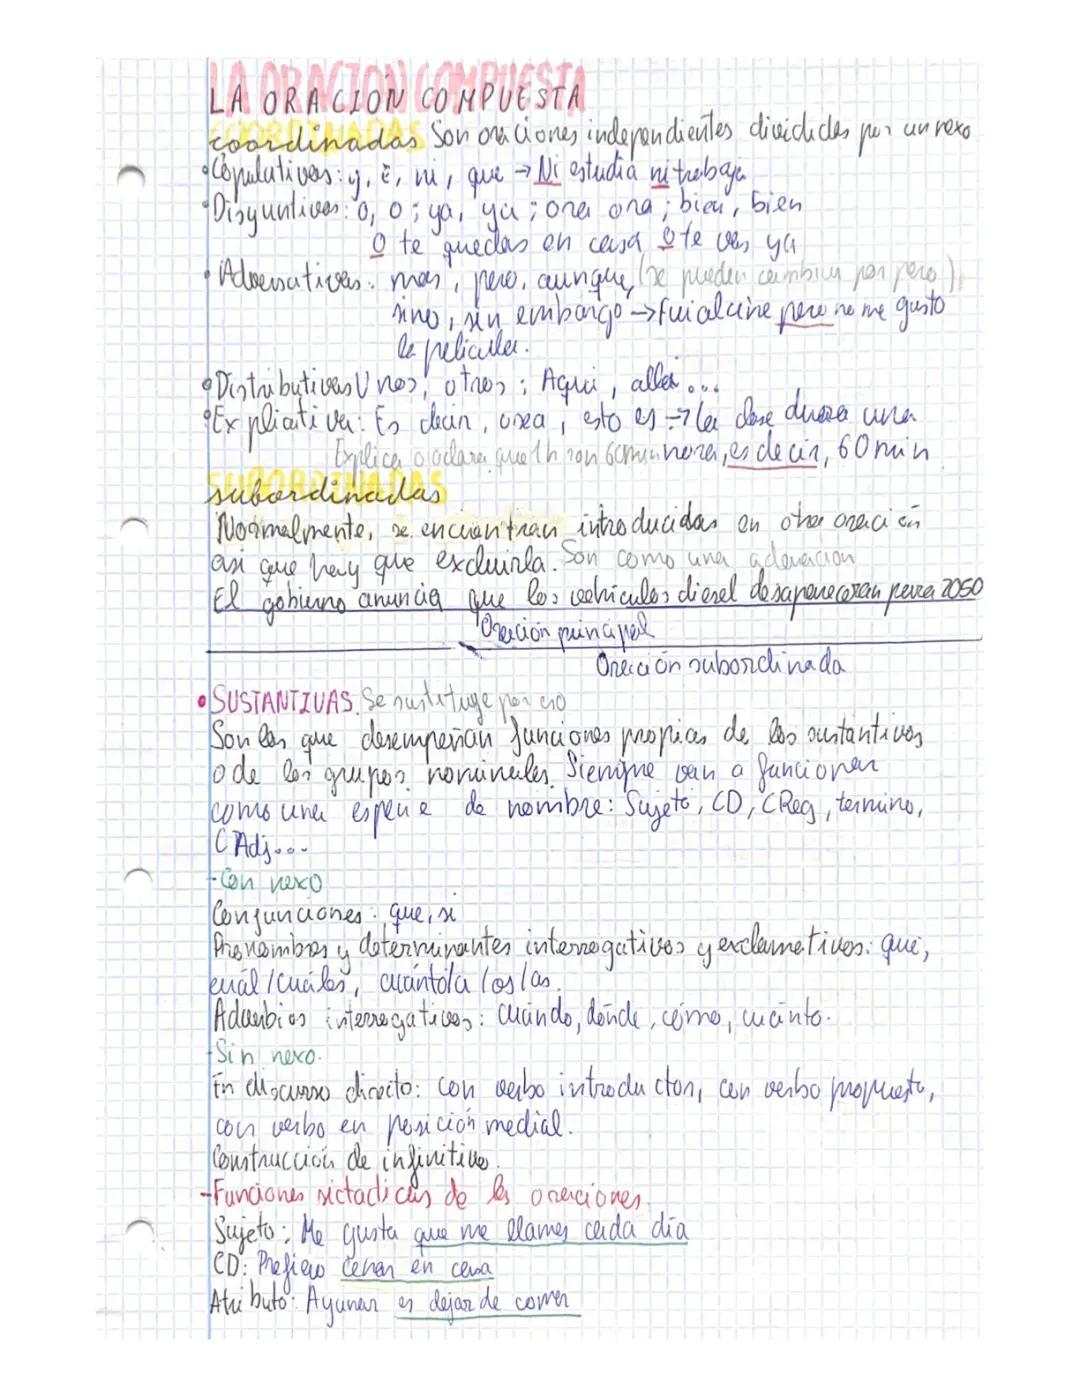 LA ORACIÓN COMPUESTA
COORDINADAS
coordinadas Son oraciones independientes divididas por un nexo
• Copulativas: y, e, ni, que → Ni estudia ni trabaja
• Disyuntivas: o, o; ya, ya; ora ora; bien, bien
O te quedas en casa o te vas ya
• Adversativas: mas, pero, aunque, (se pueden cambiar por pero)
sino, sin embargo → Fui al cine pero no me gusto
la pelicula.
• Distributivas Unos, otros; Aqui, alla...
• Explicativa: Es decir, osea, esto es → La clase durara una
Explica o aclara que 1h son 60min hora, es decir, 60 min
SUBORDINADAS
subordinadas
Normalmente, se encuentran introducidas en otra oración
asi que hay que excluirla. Son como una aclaracion
El gobierno anuncia que los vehículos diesel desapareceran para 2050
Oración principal
Oración subordinada
• SUSTANTIVAS. Se sustituye por eso
Son las que desempeñan funciones propias de los sustantivos
o de los grupos nominales. Siempre van a funcionar
como una especie de nombre: Sujeto, CD, CReg, termino,
CAdj...
- Con nexo
Conjunciones: que, si
Pronombres y determinantes interrogativos y exclamativos: qué,
cuál/cuáles, cuánto/a/os/as.
Adverbios interrogativos: Cuándo, dónde, cómo, cuánto.
- Sin nexo.
En discurso directo: con verbo introductor, con verbo propuesto,
con verbo en posición medial.
Construcción de infinitivo.
- Funciones sictacticas de las oraciones.
Sujeto: Me gusta que me llames cada día
CD: Prefiero cenar en casa
Atributo: Ayunar es dejar de comer